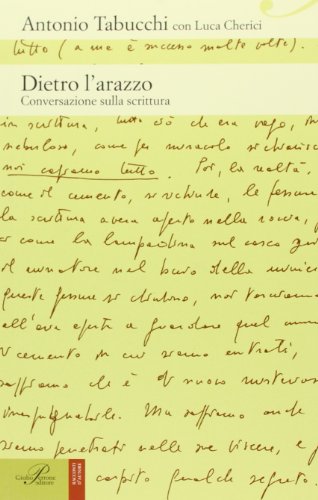 Antonio Tabucchi con Luca Cherici
tutto (a me è successo molte volte).
Dietro l'arazzo
Conversazione sulla scrittura
in scrittura, tutto ciò che era vago,
nebuloso, come per miracolo si chiarisce
noi capiamo tutto. Poi, la realtà,
come il cemento, si richiude, le fessure
la scrittura aveva aperto nella roccia,
come la lampadina sul casco
il minatore nel buio della miniera
queste fessure si chiudono, noi torniamo
all'aria aperta a guardare quel
cemento in cui siamo entrati,
sappiamo che è di nuovo misterioso
inespugnabile. Ma sappiamo anche
siamo penetrati nelle sue viscere, e
carpito qualche segreto.
Giulio Perrone
editore